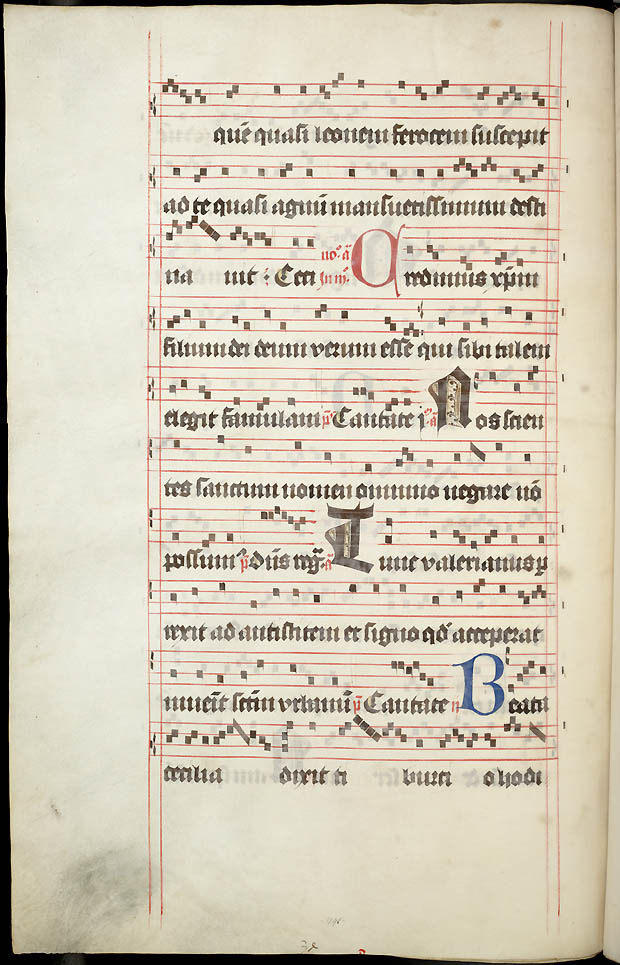 quē quasi leonem ferocem suscepit
ad te quasi agnū mansuetissimum desti
na uit : Ceci in iijº. nº. a Credimus xp̄m
filium dei deum verum esse qui sibi talem
elegit famulam p̄ Cantate jº a Nos scien
tes sanctum nomen omnino negare nō
possumꝰ p̄ Dn̄s reg̃. a Tunc valerianus ꝑ
rexit ad antistitem et signo qd̄ acceperat
inuen̄it sctm̄ vrbanū p̄ Cantate ꝶ Beata
cecilia dixit ti burci o hodi